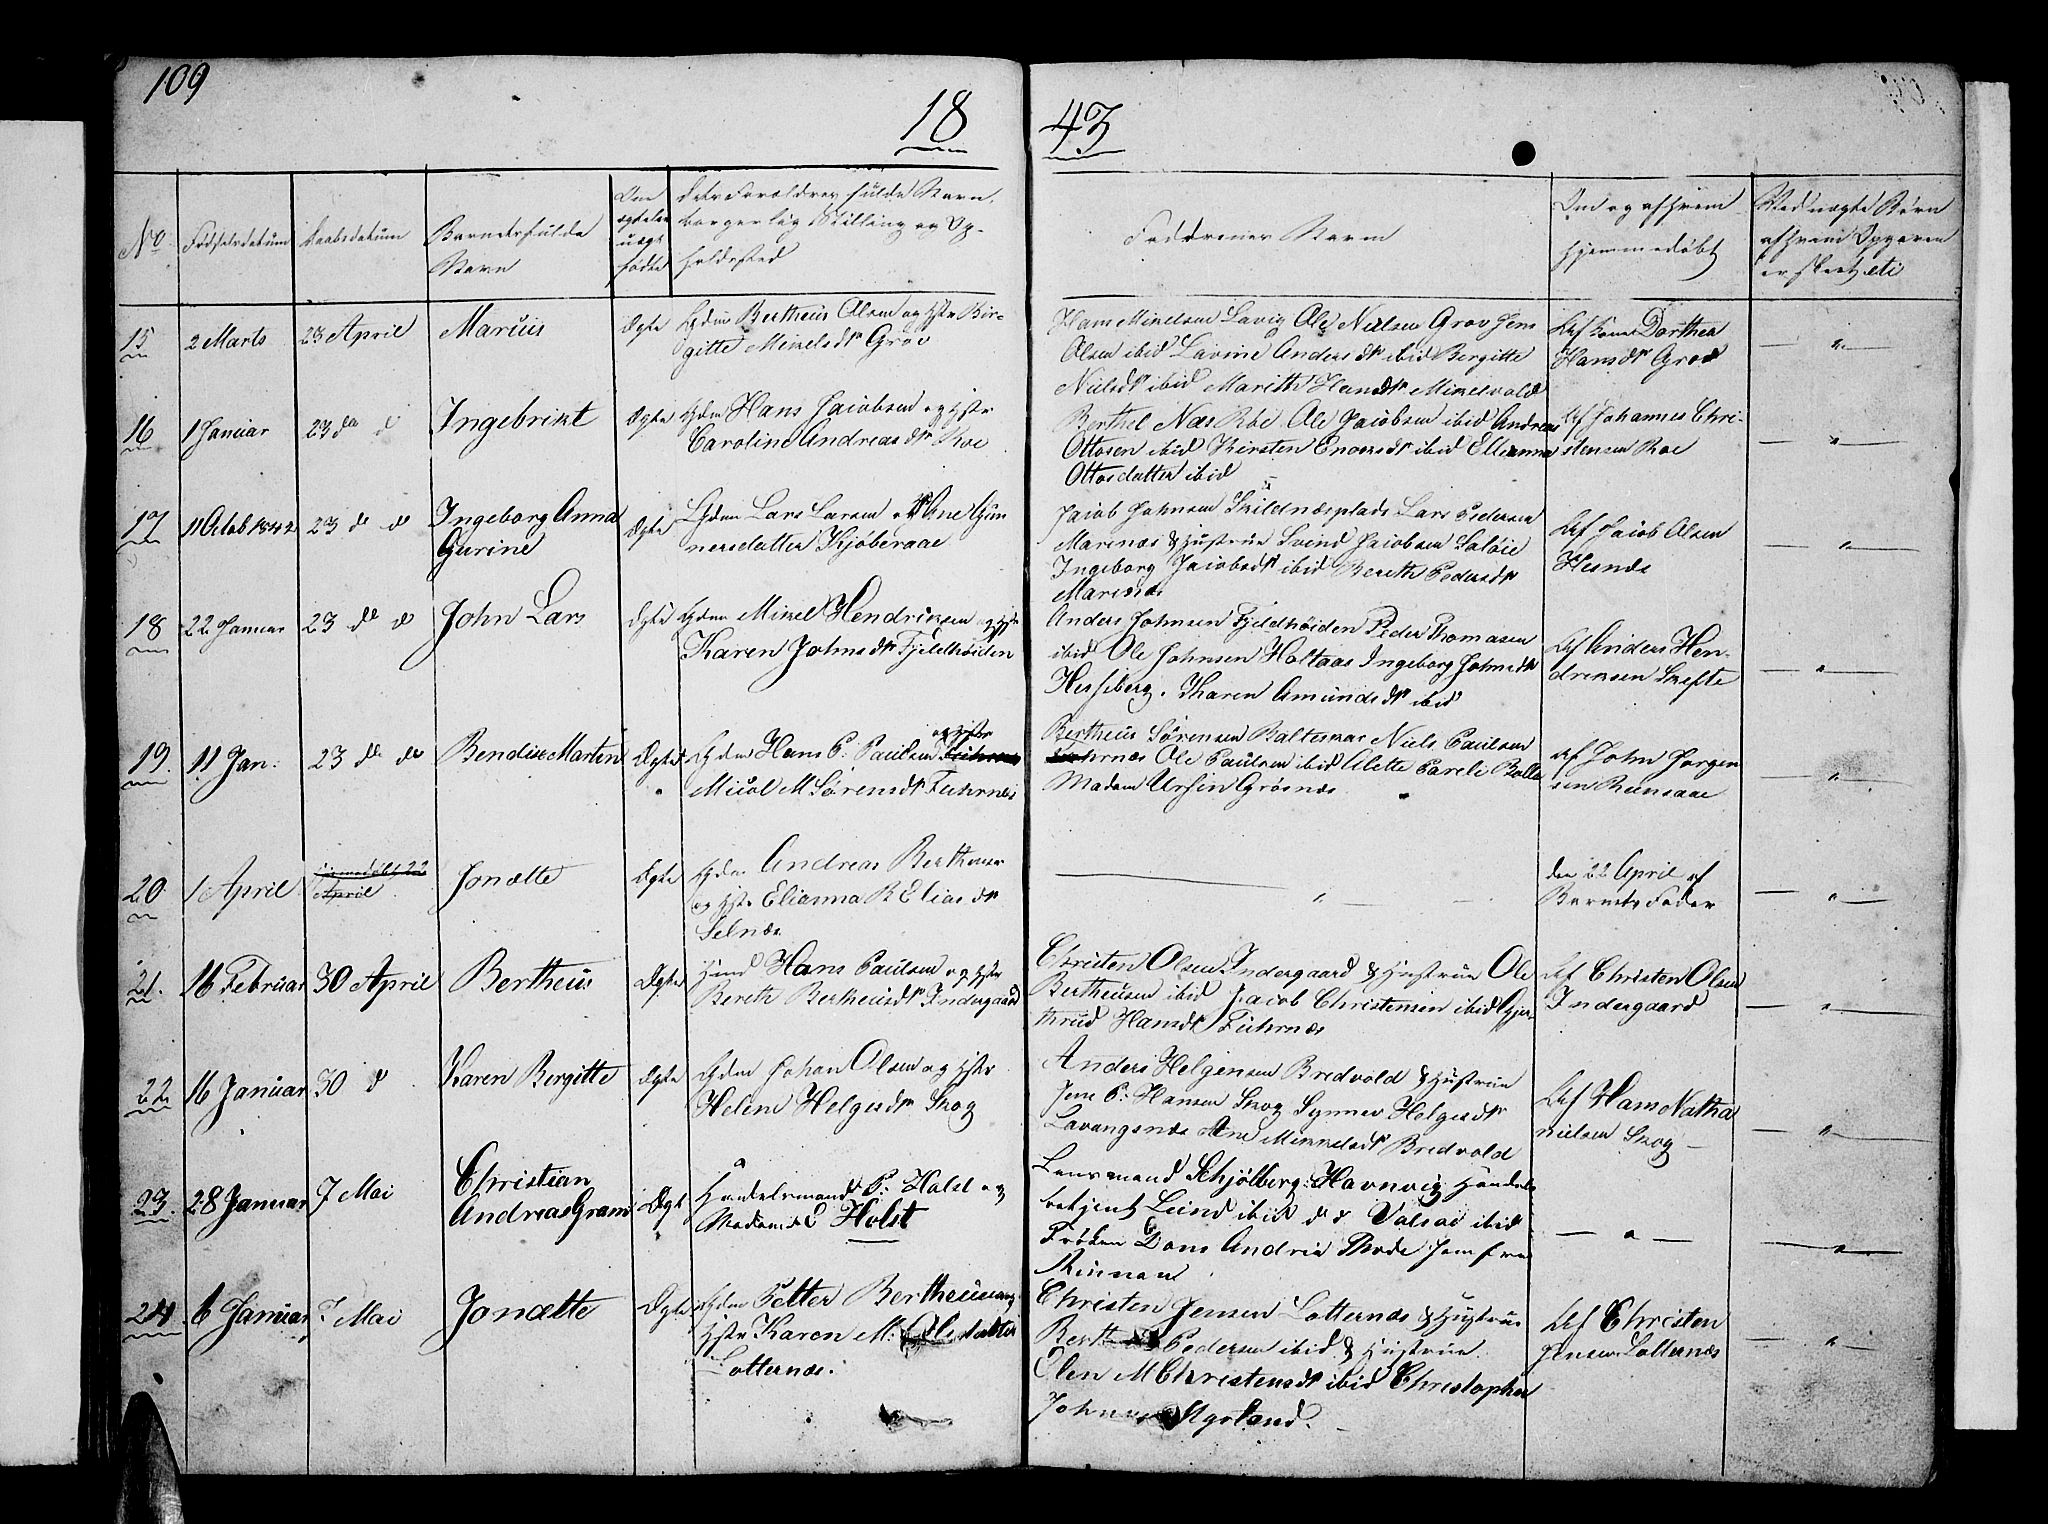 109
18 43
No. Fødselsdatum Daabsdatum Barnets fulde Navn Om ægte eller uægte fødte Dets Forældres fulde Navn, borgerlig Stilling og Opholdssted Faddrenes Navn Om og af hvem hjemmedøbt Ved uægte Børn af hvem Opgaven er skeet etc
15 2 Marts 23 April Marius Ægte Gdm Bertheus Olsen og Hstr Bir-
gitte Mikelsdtr Grov
Hans Mikelsen Lavig Ole Nielsen Grov Jens
Olsen ibid Lavine Andersdtr ibid Bergitte
Nielsdtr ibid Marith Hansdtr Mikelvold
Af Kone Dorthea
Hansdtr Grov
16 1 Januar 23 de d Ingebrikt Ægte Gdm Hans Jacobsen og Hstr
Caroline Andreasdtr Roe
Berthel Næs Roe Ole Jacobsen ibid Andreas
Ottosen ibid Kirsten Enocksdtr ibid Ellianna
Ottosdatter ibid
Af Johannes Chri-
stensen Roe
17 11 Octob 1842 23 de d Ingeborg Anna
Gurine
Ægte Gdm Lars Larsen og Ane Gun
nersdatter Kjøberaae
Jacob Johnsen Skildnæsplads Lars Pedersen
Marenæs & Hustrue Svend Jacobsen Saløie
Ingeborg Jacobsdtr ibid Bereth Pedersdtr
Marenæs
Af Jacob Olsen
Hesnæs
18 22 Januar 23 de d John Lars Ægte Gdm Mikel Hendriksen og Hstr
Karen Johnsdtr Fjeldhøiden
Anders Johnsen Fjeldhøiden Peder Thomasen
ibid Ole Johnsen Holtaas Ingeborg Johnsdtr
Hessberg. Karen Amundsdtr ibid
Af Anders Hen-
driksen Skefte
19. 11 Jan. 23 de de Bendix Martin Ægte Gdm Hans P. Paulsen og Hstr
Nicol M Sørensdtr Fuhrnæs
Bertheus Sørensen Balteskar Niels Paulsen
Fuhrnæs Ole Paulsen ibid Alette Pareli Balle
Madam Ursin Grøsnæs
Af John Jørgen
sen Reensaae
20 1 April April Jonætte Ægte Gdm Andreas Bertheusen
og Hstr Elianna B Eliasdtr
Selnæs
den 22 April af
Barnets Fader
21. 16 Februar 30 April Bertheus Ægte Hmd Hans Paulsen og Hstr
Bereth Bertheusdtr Indergaard
Christen Olsen Indergaard & Hustrue Ole
Bertheusen ibid Jacob Christensen ibid Gjer-
thrud Hansdtr Fuhrnæs
Af Christen Olsen
Indergaard
22 16 Januar 30 d Karen Bergitte Ægte Gdm Johan Olsen og Hstr
Helene Helgesdtr Skog
Anders Helgensen Bredvold & Hustrue
Jens P. Hansen Skog Synnev Helgesdtr
Lavangsnæs Ane Mikkelsdtr Bredvold
Af Hans Natha
nielsen Skog
23. 28 Januar 7 Mai Christian
Andreas Gram
Ægte Handelsmand P. Holst og
Madame Holst
Lensmand Schjølberg Havnvig Handels
betjent Lund ibid d d Valsøe ibid
Frøken Dons Andrea Rode Jomfrue
24 6 Januar 7 Mai Jonætte Ægte Gdm Petter Bertheusen og
Hstr Karen M. Olsdatter
Lotternæs.
Christen Jensen Lotternæs & Hustrue
Pedersen ibid & Hustrue
Elen M Christensdtr ibid Christopher
Nyeland.
Af Christen
Jensen Lotternæs